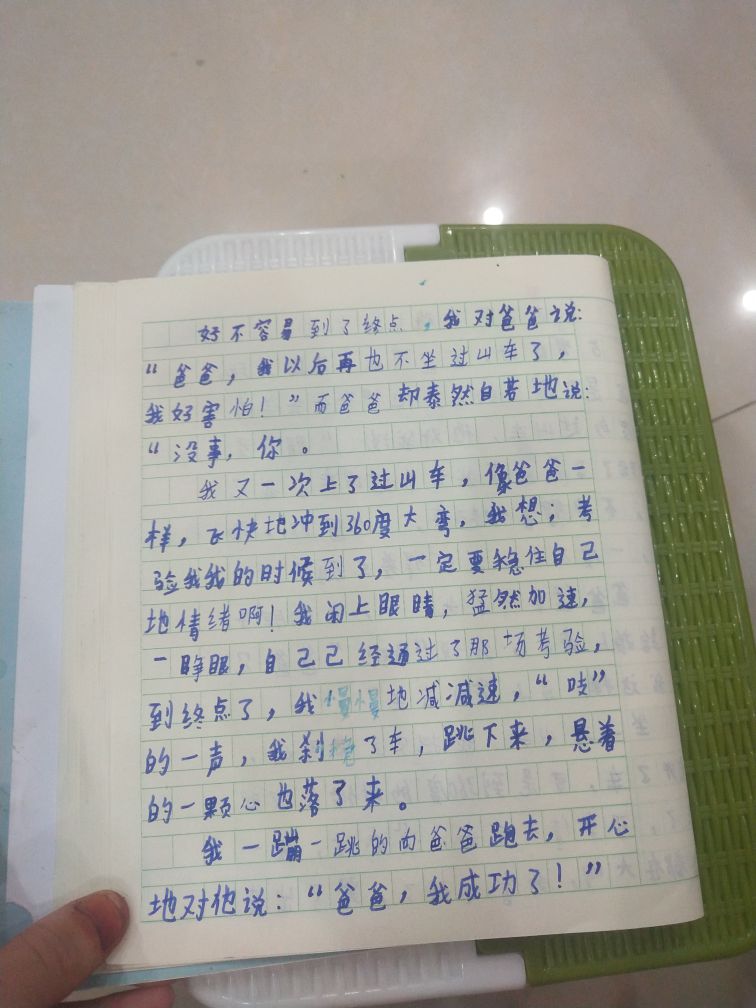 好不容易到了终点，我对爸爸说：
“爸爸，我以后再也不坐过山车了，
我好害怕！”而爸爸却泰然自若地说：
“没事，你。
我又一次上了过山车，像爸爸一
样，飞快地冲到360度大弯，我想；考
验我我的时候到了，一定要稳住自己
地情绪啊！我闭上眼睛，猛然加速，
一睁眼，自己已经通过了那场考验，
到终点了，我慢慢地减减速，“吱”
的一声，我刹稳了车，跳下来，悬着
的一颗心也落了来。
我一蹦一跳的向爸爸跑去，开心
地对他说：“爸爸，我成功了！”